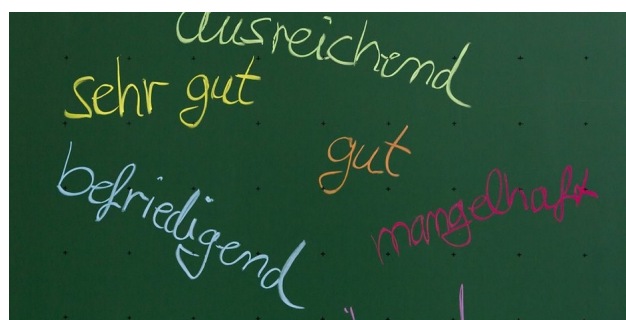 ausreichend
sehr gut
gut
befriedigend
mangelhaft